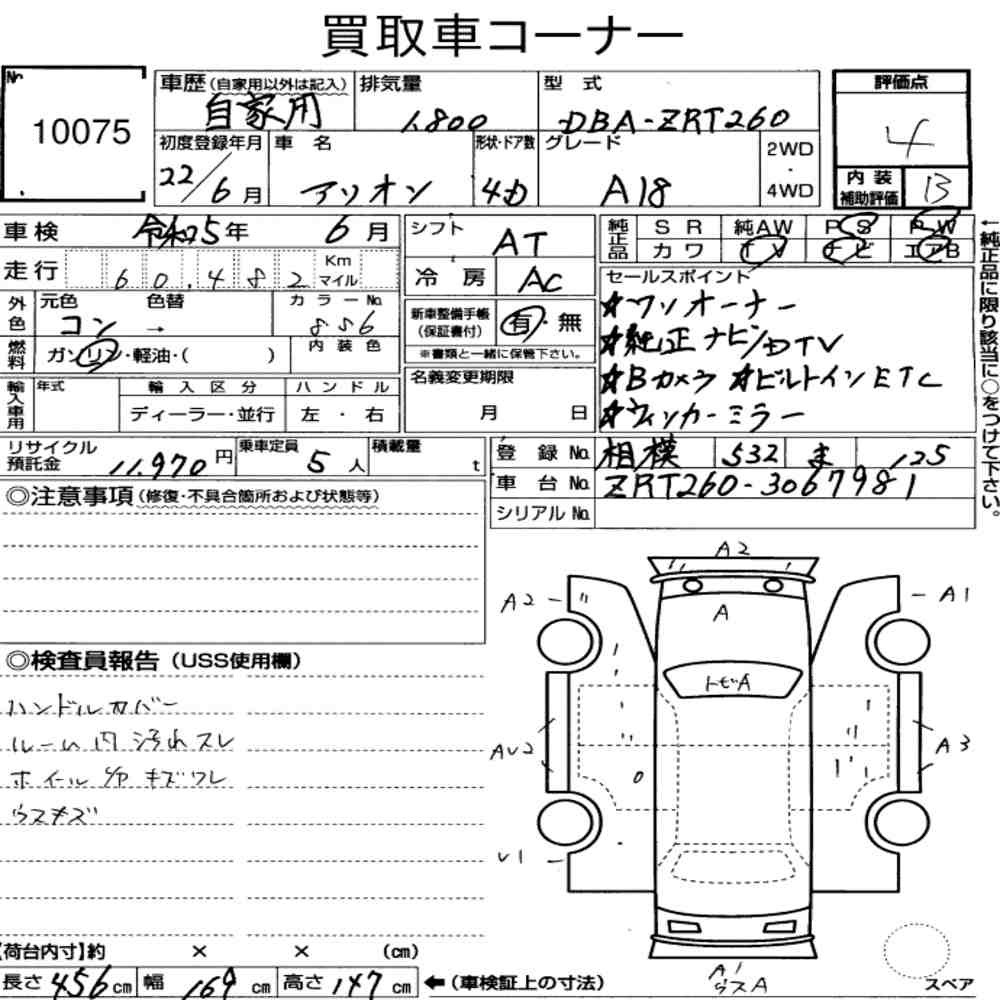 買取車コーナー
No. 10075
車歴(自家用以外は記入) 自家用
排気量 1800
型式 DBA-ZRT260
評価点 4
初度登録年月 22/6月
車名 アリオン
形状・ドア数 4D
グレード A18
2WD・4WD
内装補助評価 B
車検 令和5年 6月
シフト AT
純正品 SR 純AW PS PW
カワ TV ナビ エアB
走行 60,482 Km マイル
冷房 AC
セールスポイント
外色 元色 コン → 色替 カラーNo. 856
新車整備手帳(保証書付) 有・無
※書類と一緒に保管下さい。
☆ワンオーナー
☆純正ナビ/DTV
燃料 ガソリン・軽油・( ) 内装色
名義変更期限 月 日
☆Bカメラ ☆ビルトインETC
☆ウィンカーミラー
輸入車用 年式 輸入区分 ハンドル
ディーラー・並行 左・右
←純正品に限り該当に○をつけて下さい。
リサイクル預託金 11,970円
乗車定員 5人
積載量 t
登録No. 相模 532 ま 125
車台No. ZRT260-3067981
シリアルNo.
◎注意事項(修復・不具合箇所および状態等)
◎検査員報告(USS使用欄)
ハンドルカバー
ルーム内汚れスレ
ホイール/P キズワレ
ウスキズ
A2
A2 A A1
トビA
AU2 A3
U1
A1
ウスA
スペア
【荷台内寸】約 × × (cm)
長さ 456cm 幅 169cm 高さ 147cm ←(車検証上の寸法)